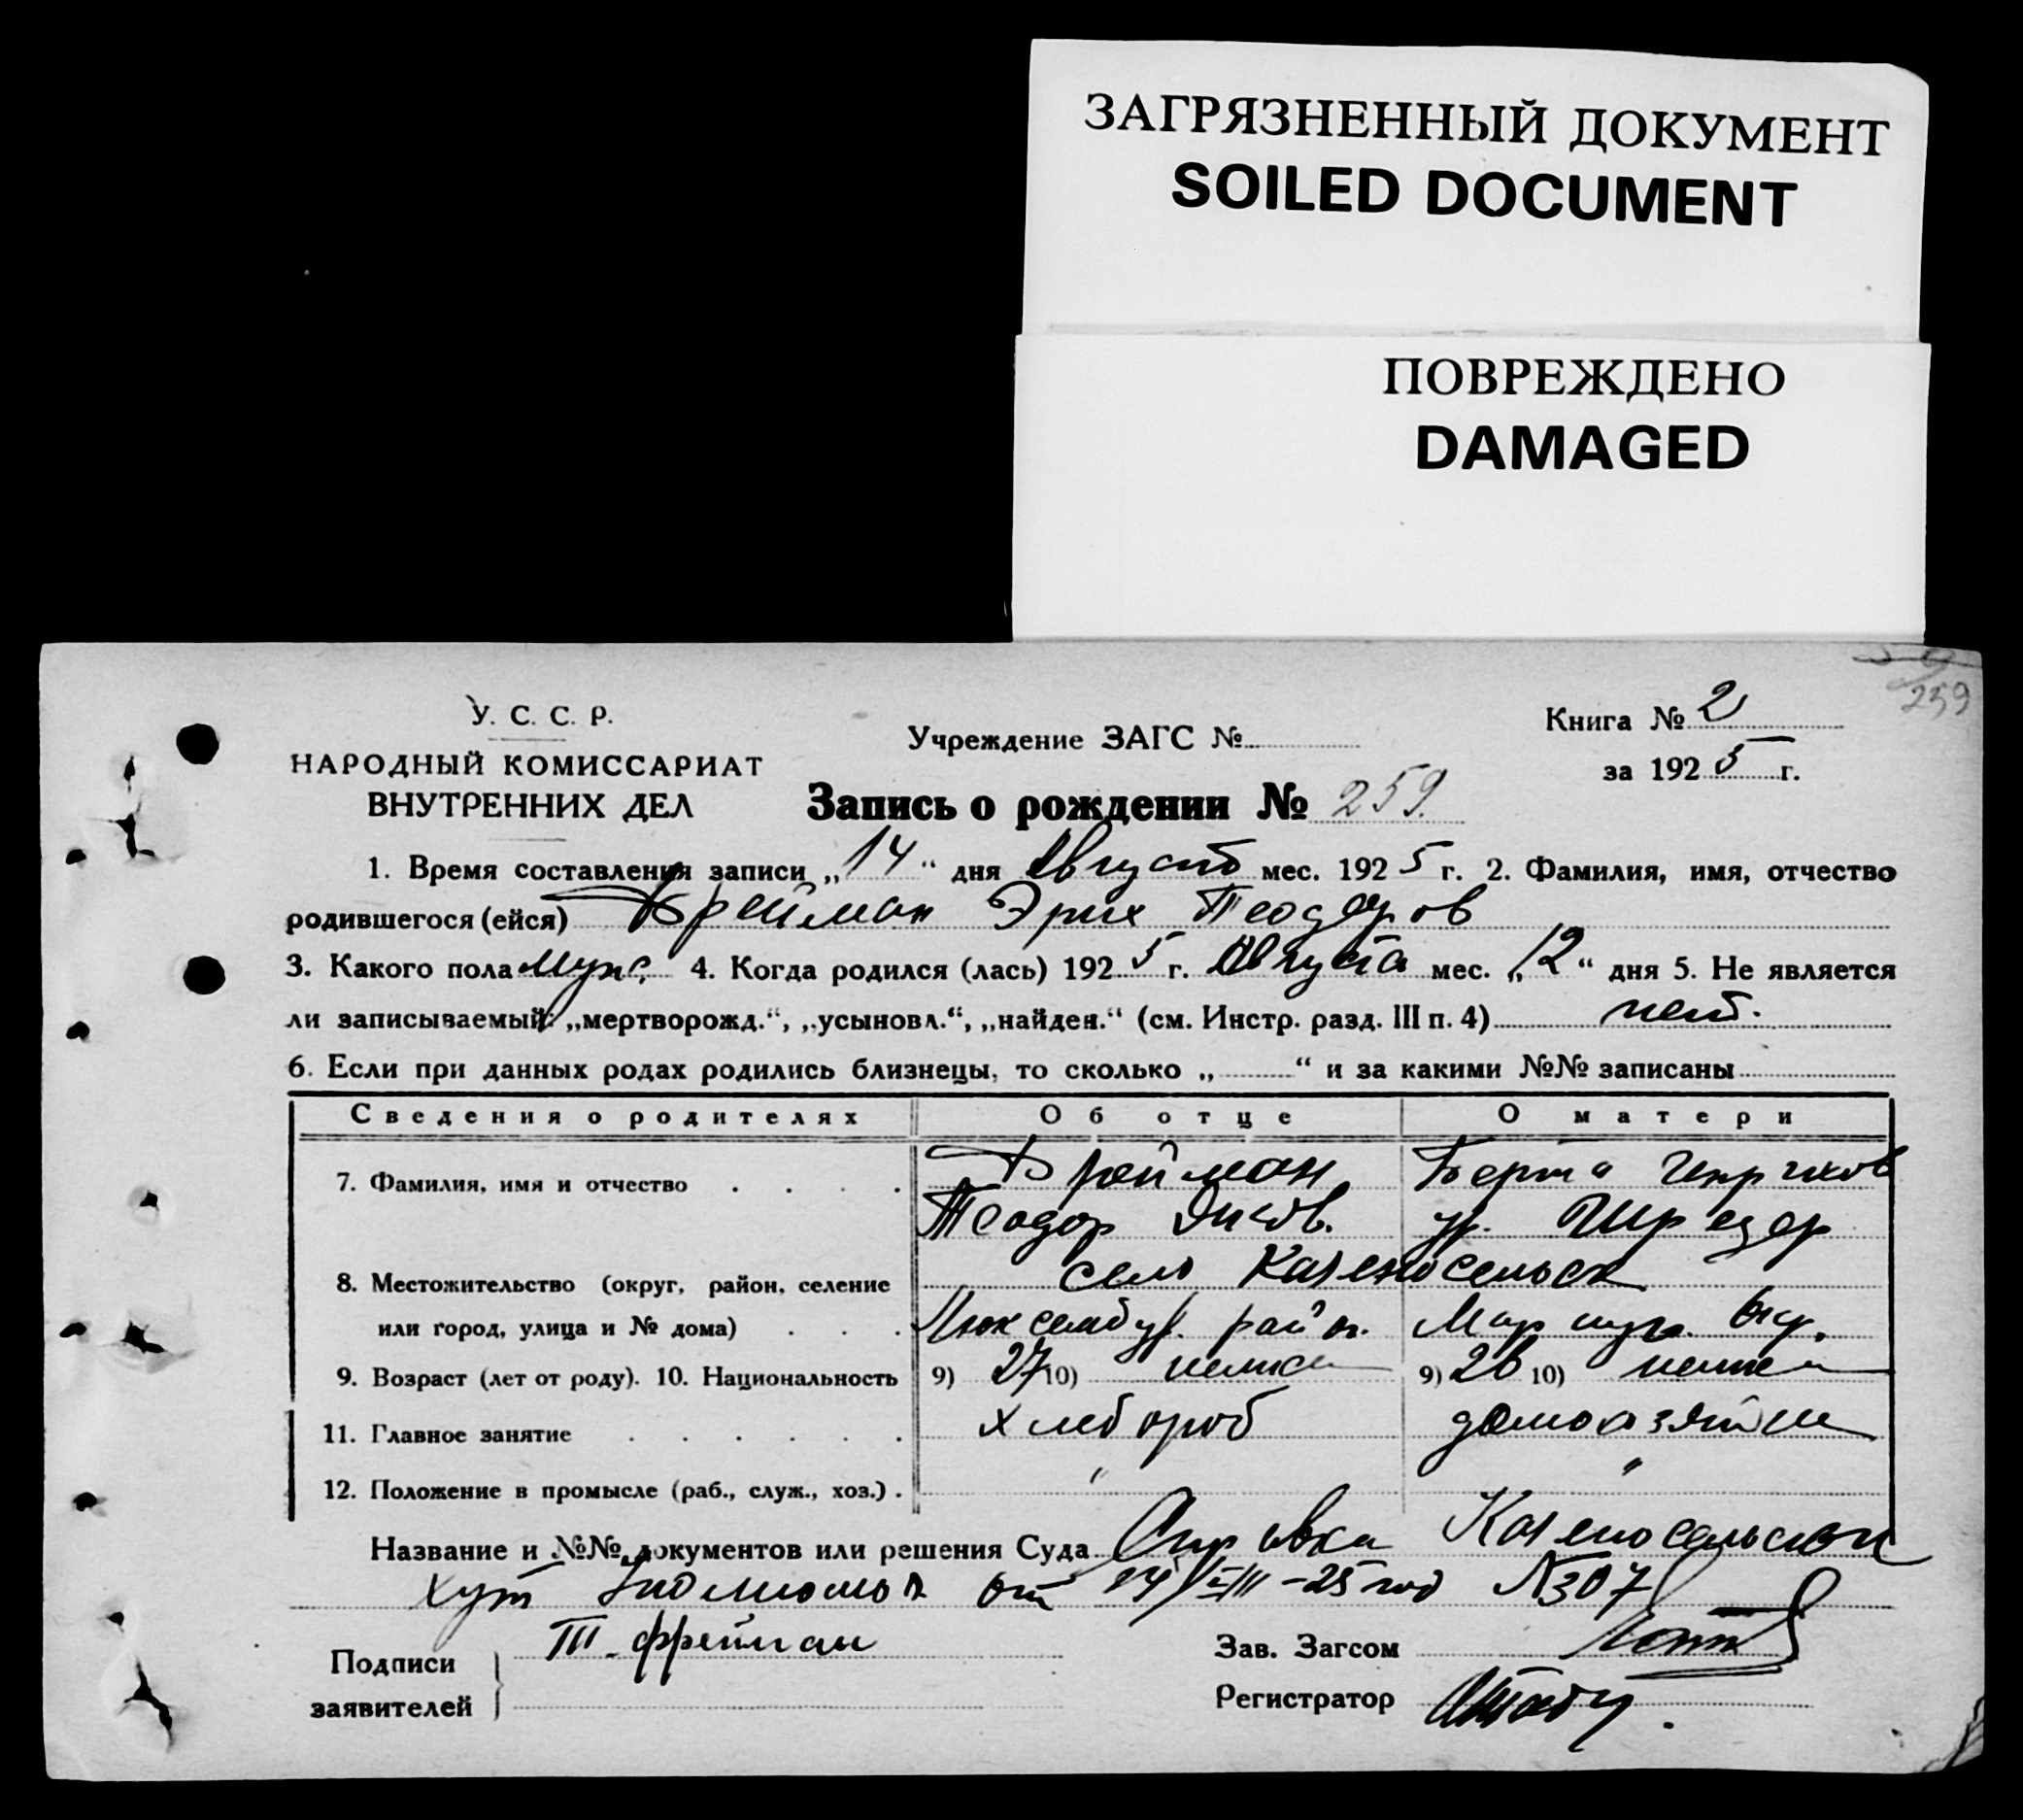 ЗАГРЯЗНЕННЫЙ ДОКУМЕНТ
SOILED DOCUMENT
ПОВРЕЖДЕНО
DAMAGED
259
У. С. С. Р.
НАРОДНЫЙ КОМИССАРИАТ
ВНУТРЕННИХ ДЕЛ
Учреждение ЗАГС №
Книга № 2
за 1925 г.
Запись о рождении № 259.
1. Время составления записи „14“ дня Август мес. 1925 г. 2. Фамилия, имя, отчество
родившегося (ейся) Фрейман Эрих Теодоров
3. Какого пола муж. 4. Когда родился (лась) 1925 г. Августа мес. „12“ дня 5. Не является
ли записываемый: „мертворожд.“, „усыновл.“, „найден.“ (см. Инстр. разд. III п. 4) нет.
6. Если при данных родах родились близнецы, то сколько „ “ и за какими №№ записаны
Сведения о родителях Об отце О матери
7. Фамилия, имя и отчество Фрейман Берта
Теодор Яков. ур. Шредер
8. Местожительство (округ, район, селение село
или город, улица и № дома) Люксембур. район. Окр.
9. Возраст (лет от роду). 10. Национальность 9) 27 10) немец 9) 26 10) немка
11. Главное занятие хлебороб домохозяйк
12. Положение в промысле (раб., служ., хоз.) " "
Название и №№ документов или решения Суда Справка
хут от 14/VIII-25 год №307
Подписи заявителей Т. Фрейман
Зав. Загсом
Регистратор